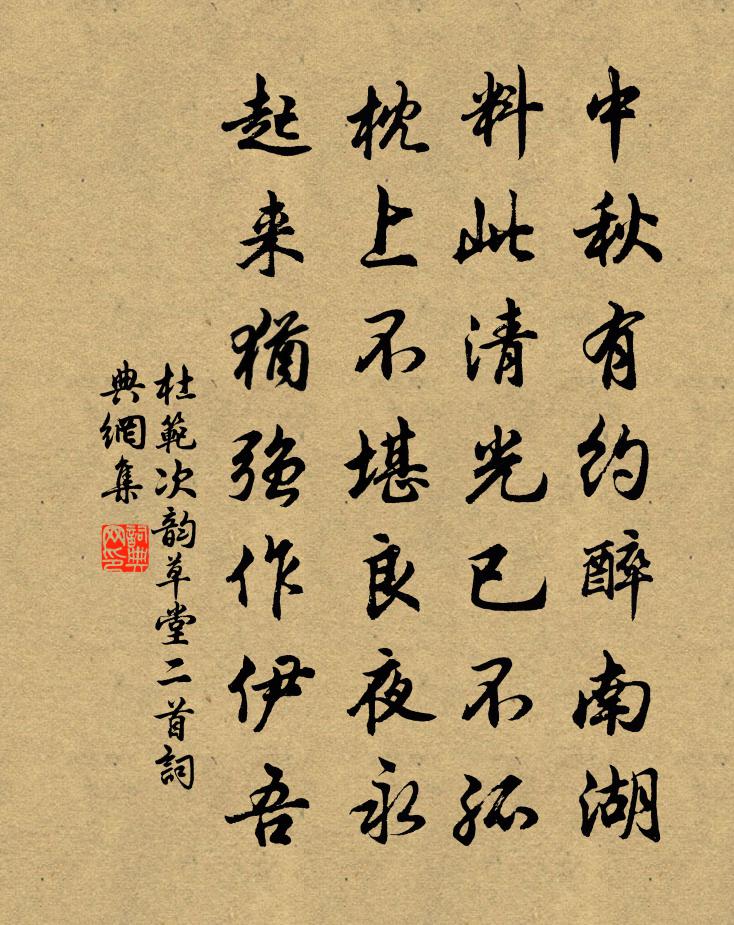 中秋有约醉南湖
料此清光已不孤
枕上不堪良夜永
起来猶强作伊吾
杜範次韵草堂二首詞
典網集
詞典网印